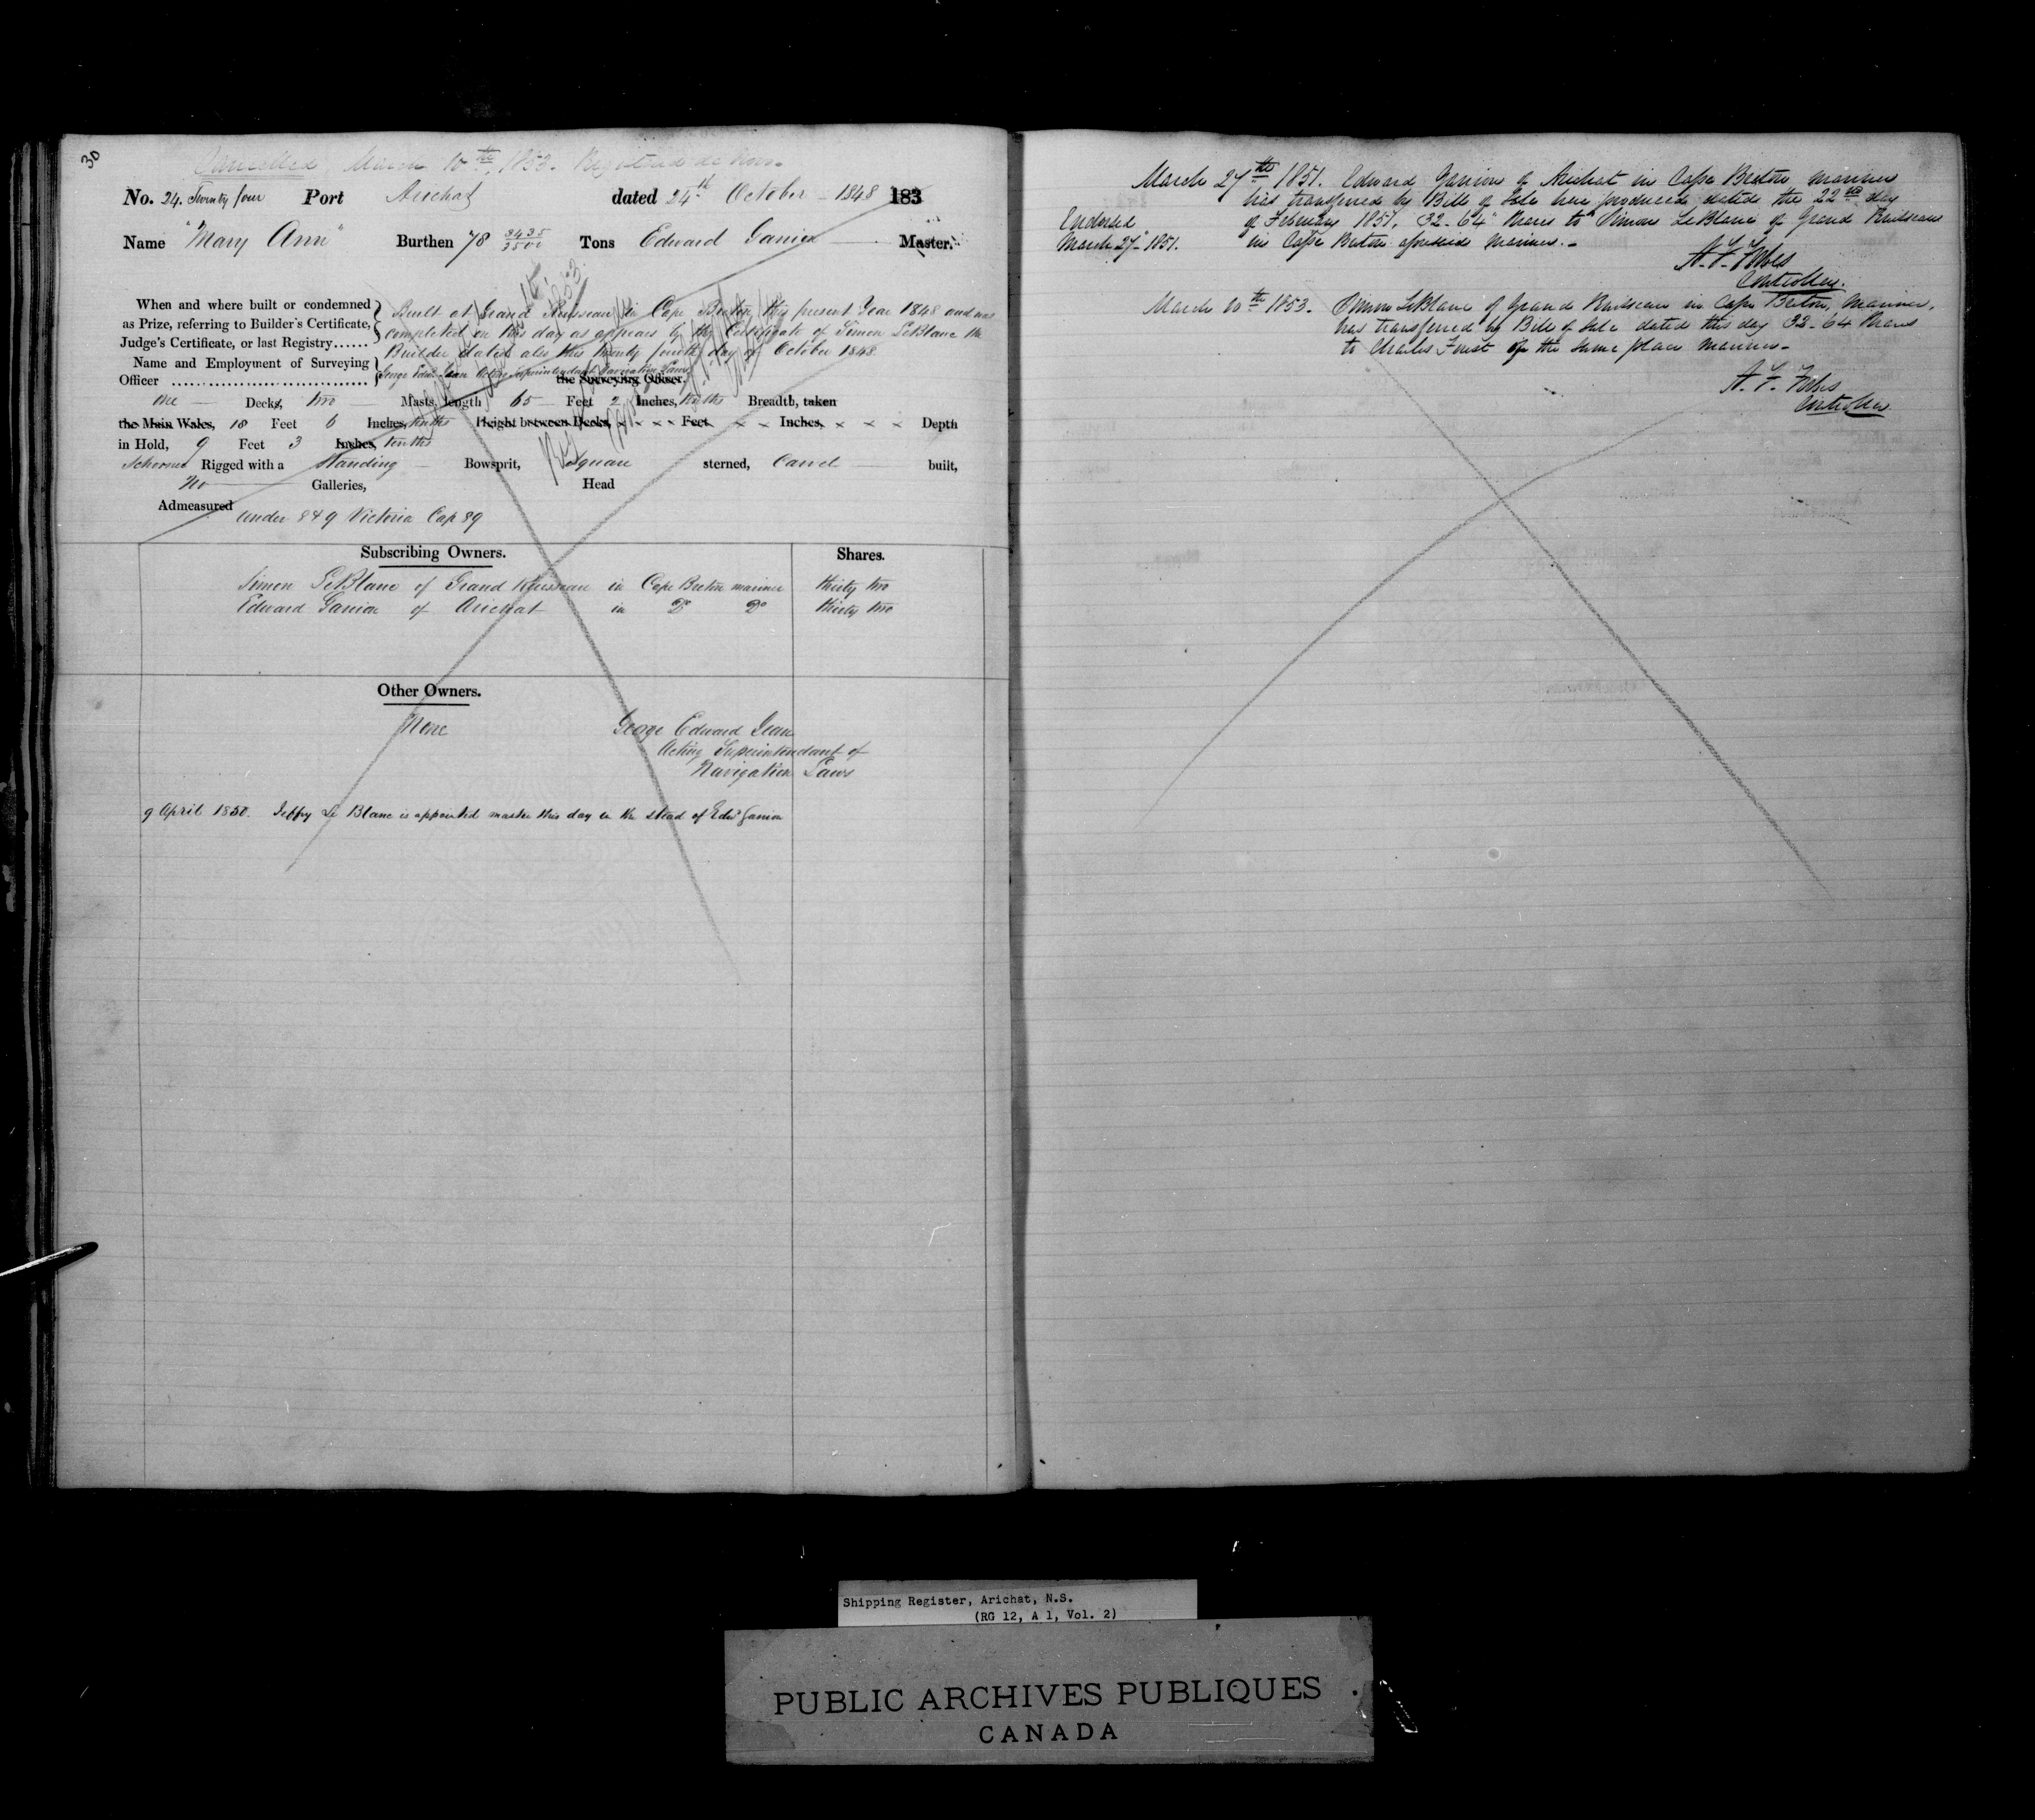 30
Cancelled March 10th 1853. Registered de Novo
No. 24. Twenty four Port Arichat dated 24th October 1848 183
Name "Mary Ann" Burthen 78 3435/3500 Tons Edward Ganion Master.
When and where built or condemned
as Prize, referring to Builder's Certificate,
Judge's Certificate, or last Registry......
Built at Grand Ruisseau in Cape Breton this present Year 1848 and was
completed on this day as appears by the Certificate of Simon LeBlanc the
Builder dated also this twenty fourth day of October 1848
Name and Employment of Surveying
Officer
George Edwd Jean Acting Superintendent Navigation Laws
the Surveying Officer.
One Decks, two Masts, length 65 Feet 2 Inches, tenths Breadth, taken
the Main Wales, 18 Feet 6 Inches, tenths Height between Decks, x x x x Feet x x Inches, x x x Depth
in Hold, 9 Feet 3 Inches, tenths
Schooner Rigged with a Standing Bowsprit, Square sterned, Carvel built,
No Galleries, Head
Admeasured under 8 & 9 Victoria Cap 89
Subscribing Owners. Shares.
Simon LeBlanc of Grand Ruisseau in Cape Breton mariner thirty two
Edward Ganion of Arichat in Do Do thirty two
Other Owners.
None
George Edward Jean
Acting Superintendant of
Navigation Laws
9 April 1850. Jeffry Le Blanc is appointed master this day in the stead of Edwd Ganion
March 27th 1851. Edward Ganion of Arichat in Cape Breton mariner
has transferred by Bill of Sale here produced, dated the 22nd day
of February 1851, 32-64th Shares to Simon LeBlanc of Grand Ruisseau
in Cape Breton aforesaid Mariner.-
Endorsed
March 27th 1851.
A. F. Forbes
Controller.
March 10th 1853. Simon LeBlanc of Grand Ruisseau in Cape Breton, Mariner,
has transferred by Bill of Sale dated this day 32-64 Shares
to Charles Forest of the same place Mariner-
A. F. Forbes
Controller
Shipping Register, Arichat, N.S.
(RG 12, A 1, Vol. 2)
PUBLIC ARCHIVES PUBLIQUES
CANADA